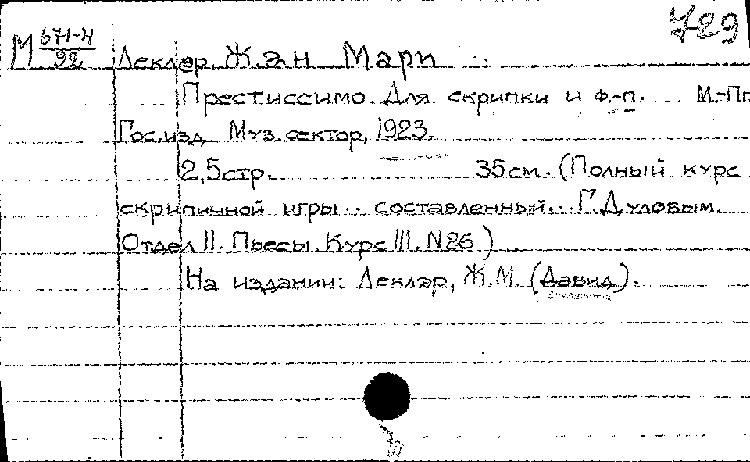 729
М 671-Н/92 Леклэр Жан Мари
Престиссимо. Для скрипки и ф.-п. М.-Пг
Гос.изд. Муз.сектор, 1923.
2,5стр. 35см. (Полный курс
скрипичной игры составленный Г.Дуловым.
Отдел II. Пьесы. Курс III. N26)
На издании: Леклэр, Ж.М. (Давид).